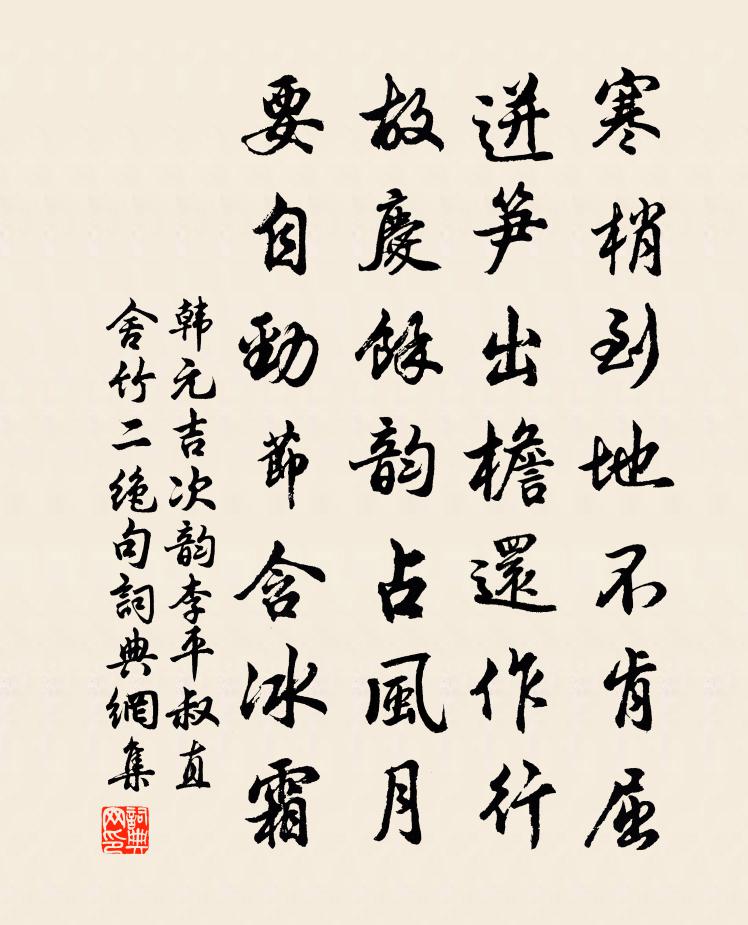 寒梢到地不肯屈
迸笋出檐還作行
故慶餘韵占風月
要自勁節含冰霜
韩元吉次韵李平叔直
舍竹二绝句詞典網集
詞典
网印